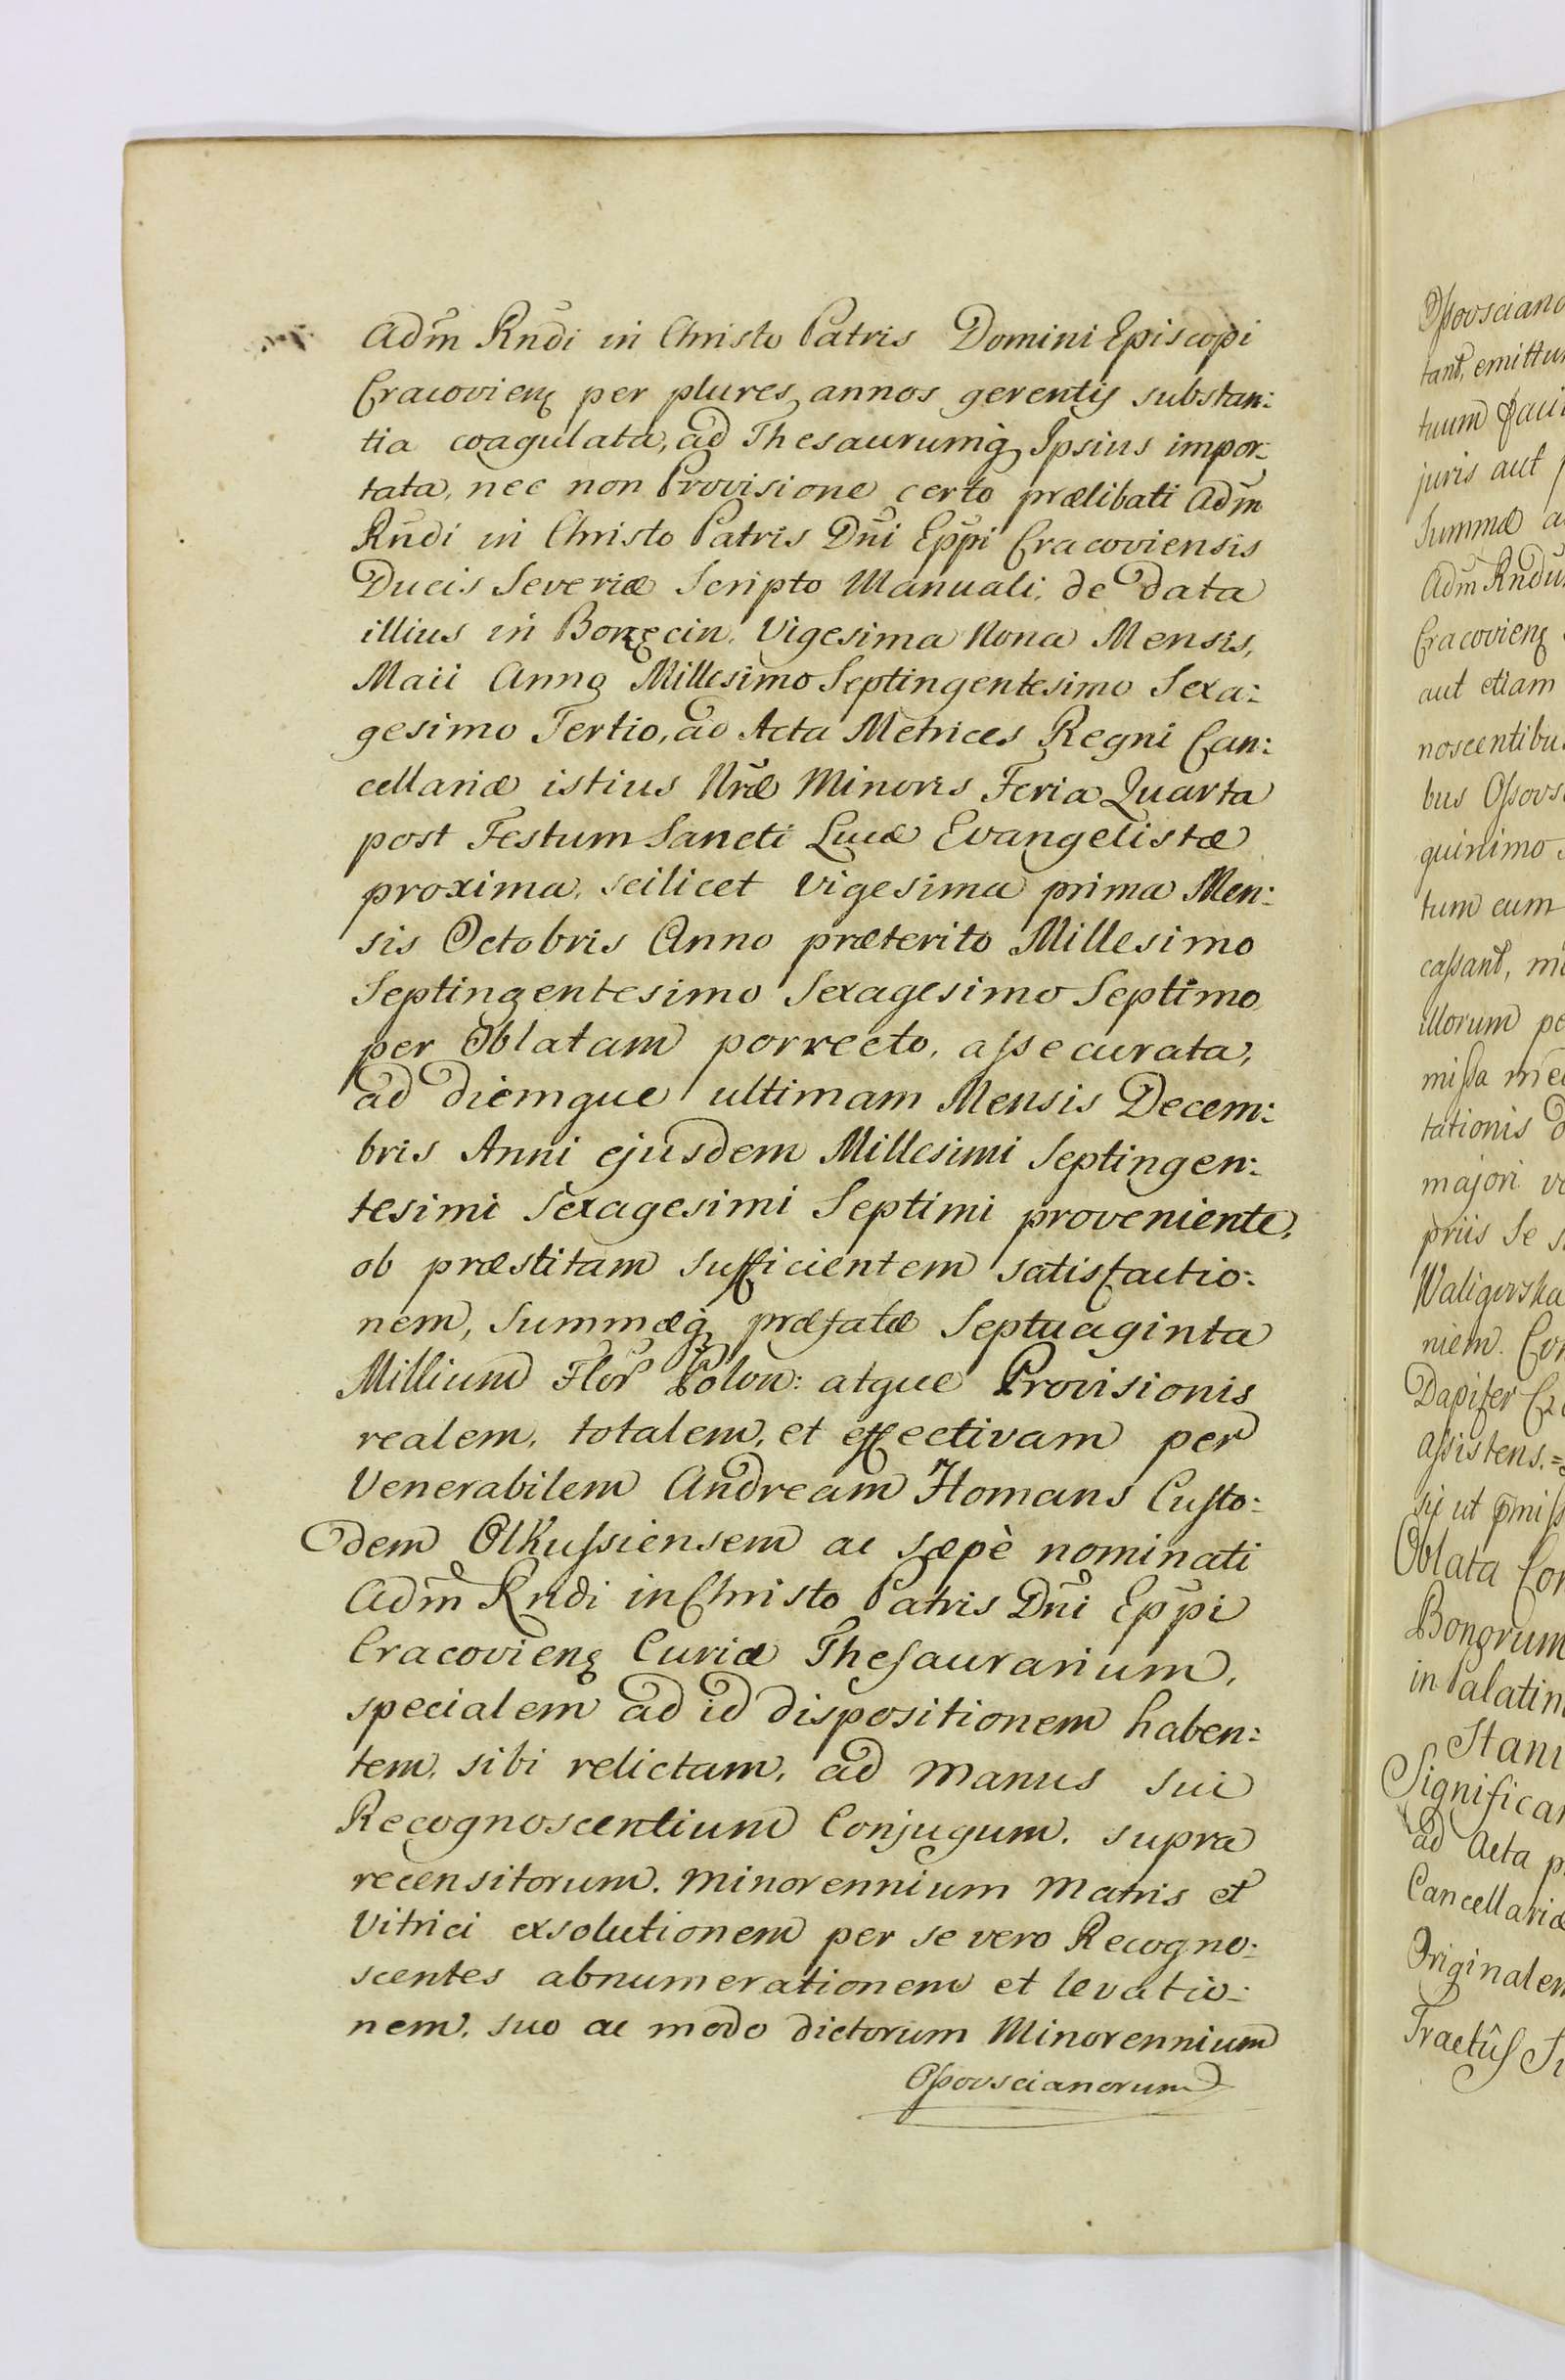 Adm̃ Rñdi in Christo Patris Domini Episcopi
Cracovienȩ per plures annos gerentis substan:
tia coagulata, ad Thesaurumq̢ Ipsius impor:
tata, nec non Provisione certo prælibati Adm̃
Rñdi in Christo Patris Dñi Epp̃i Cracoviensis
Ducis Severiæ Scripto Manuali, de Data
illius in Bonzęcin, Vigesima Nona Mensis,
Maii Anno Millesimo Septingentesimo Sexa:
gesimo Tertio, ad Acta Metrices Regni Can:
cellariæ istius Nr̃æ Minoris Feria Quarta
post Festum Sancti Lucæ Evangelistæ
proxima, scilicet Vigesima prima Men:
sis Octobris Anno præterito Millesimo
Septingentesimo Sexagesimo Septimo
per Oblatam porrecto, aſsecurata,
ad diemque ultimam Mensis Decem:
bris Anni ejusdem Millesimi Septingen:
tesimi Sexagesimi Septimi proveniente,
ob præstitam sufficientem satisfactio:
nem, Summæq̢ præfatæ Septuaginta
Millium Flor̃ Polon: atque Provisionis
realem, totalem, et effectivam per
Venerabilem Andream Homans Cuſto:
dem Olkuſsiensem ac sæpè nominati
Adm̃ Rndi in Christo Patris Dñi Epp̃i
Cracovienȩ Curiæ Theſaurarium,
specialem ad id dispositionem haben:
tem, sibi relictam, ad manus sui
Recognoscentium Conjugum, supra
recensitorum, Minorennium Matris et
Vitrici exsolutionem per se vero Recogno:
scentes abnumerationem et levatio:
nem, suo ac modo dictorum Minorennium
Oſsovscianorum
Oſsovsciano
tant, emittu
tuum
juris aut
Summæ a
Adm̃ Rndu
Cracovienȩ
aut etiam
noscentibu
bus Oſsovs
quinimo
tum cum
caſsant, m
illorum pe
miſsa me
tationis d
majori v
priis Se s
Waligorska
niem. Co
Dapifer C
aſsistens.
sy ut p̃miſs
Oblata Con
Bonorum
in Palatin
Stani
Significa
ad Acta p
Cancellariæ
Originalem
Tractûſ